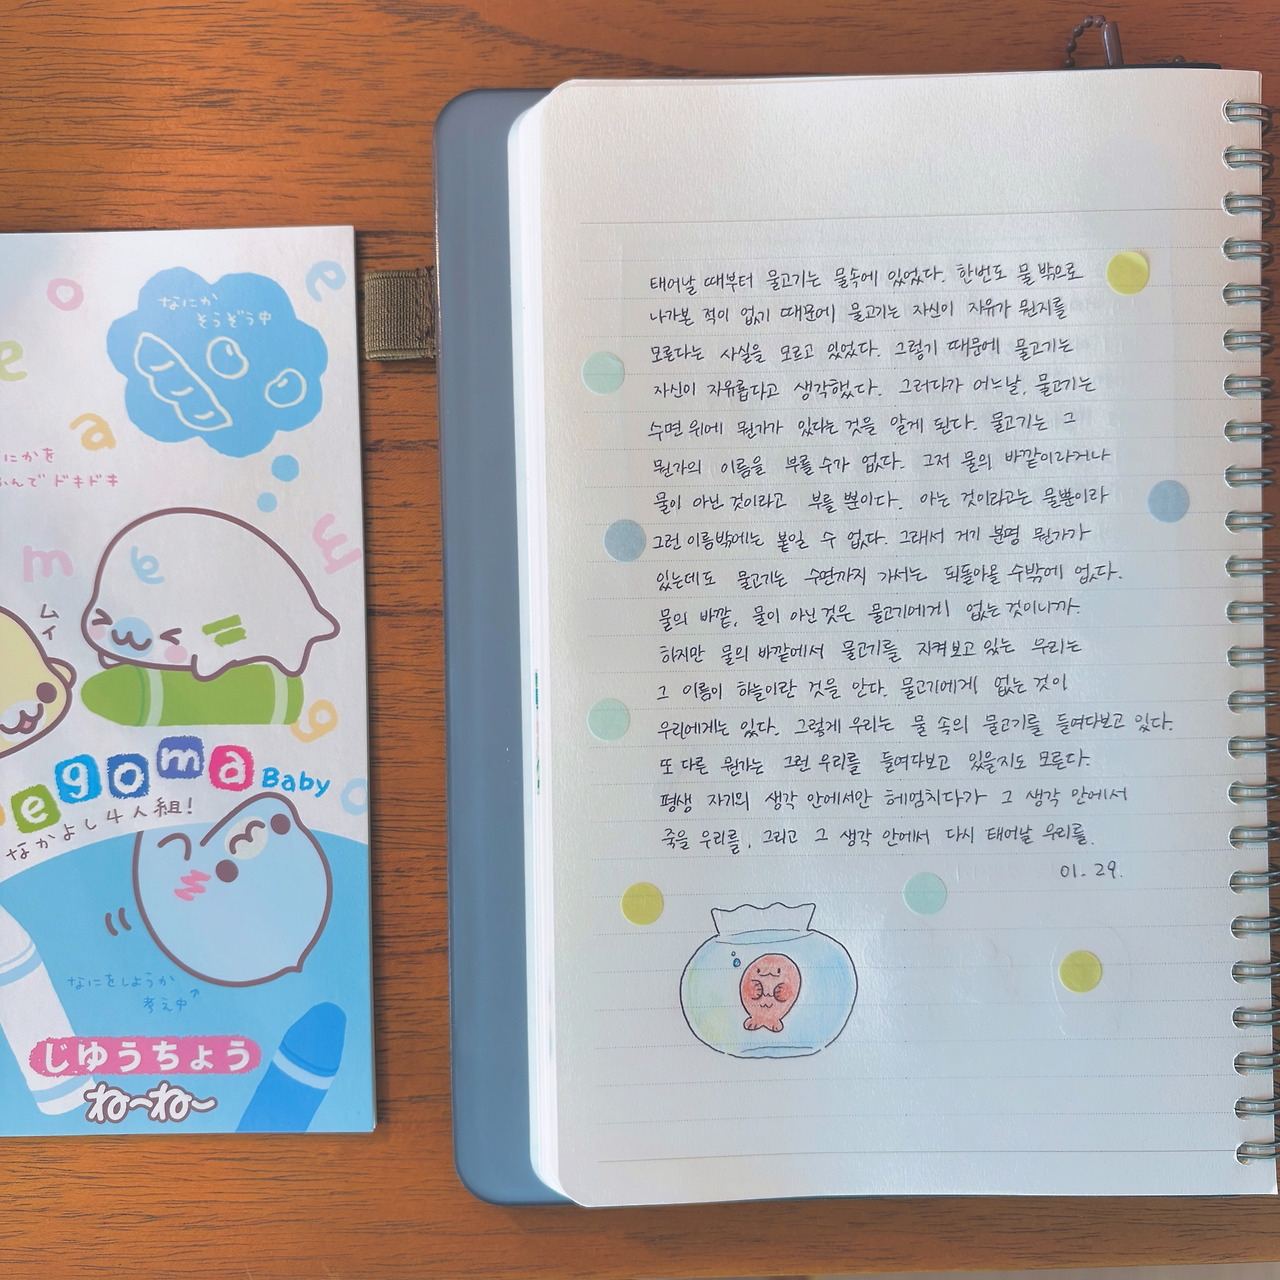 なにか
そうぞう中
e
o
e
a
にかを
んでドキドキ
m
e
m
ムイ
g
egoma Baby
なかよし4人組!
なにをしようか
考え中
じゆうちょう
ね〜ね〜
태어날 때부터 물고기는 물속에 있었다. 한번도 물 밖으로
나가본 적이 없기 때문에 물고기는 자신이 자유가 뭔지를
모른다는 사실을 모르고 있었다. 그렇기 때문에 물고기는
자신이 자유롭다고 생각했다. 그러다가 어느날, 물고기는
수면 위에 뭔가가 있다는 것을 알게 된다. 물고기는 그
뭔가의 이름을 부를 수가 없다. 그저 물의 바깥이라거나
물이 아닌 것이라고 부를 뿐이다. 아는 것이라고는 물뿐이라
그런 이름밖에는 붙일 수 없다. 그래서 거기 분명 뭔가가
있는데도 물고기는 수면까지 가서는 되돌아올 수밖에 없다.
물의 바깥, 물이 아닌 것은 물고기에게 없는 것이니까.
하지만 물의 바깥에서 물고기를 지켜보고 있는 우리는
그 이름이 하늘이란 것을 안다. 물고기에게 없는 것이
우리에게는 있다. 그렇게 우리는 물 속의 물고기를 들여다보고 있다.
또 다른 뭔가는 그런 우리를 들여다보고 있을지도 모른다.
평생 자기의 생각 안에서만 헤엄치다가 그 생각 안에서
죽을 우리를, 그리고 그 생각 안에서 다시 태어날 우리를.
01. 29.